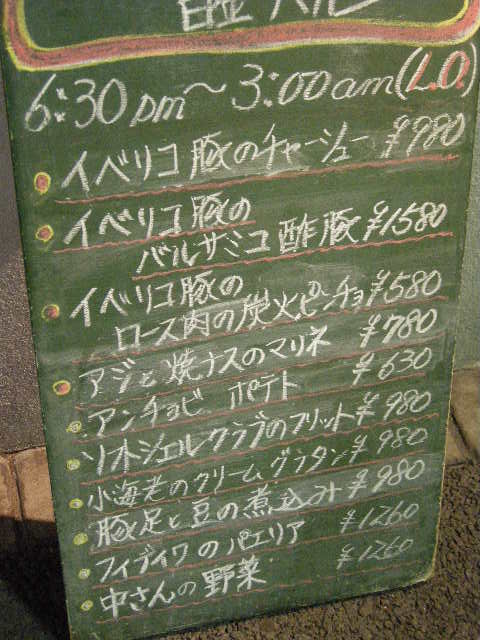 6:30pm～3:00am(L.O.)
イベリコ豚のチャーシュー ¥980
イベリコ豚の
バルサミコ酢豚 ¥1580
イベリコ豚の
ロース肉の炭火ピンチョ ¥580
アジと焼ナスのマリネ ¥780
アンチョビ ポテト ¥630
ソフトシェルクラブのフリット ¥980
小海老のクリームグラタン ¥980
豚足と豆の煮込み ¥980
フィデイワのパエリア ¥1260
中さんの野菜 ¥1260